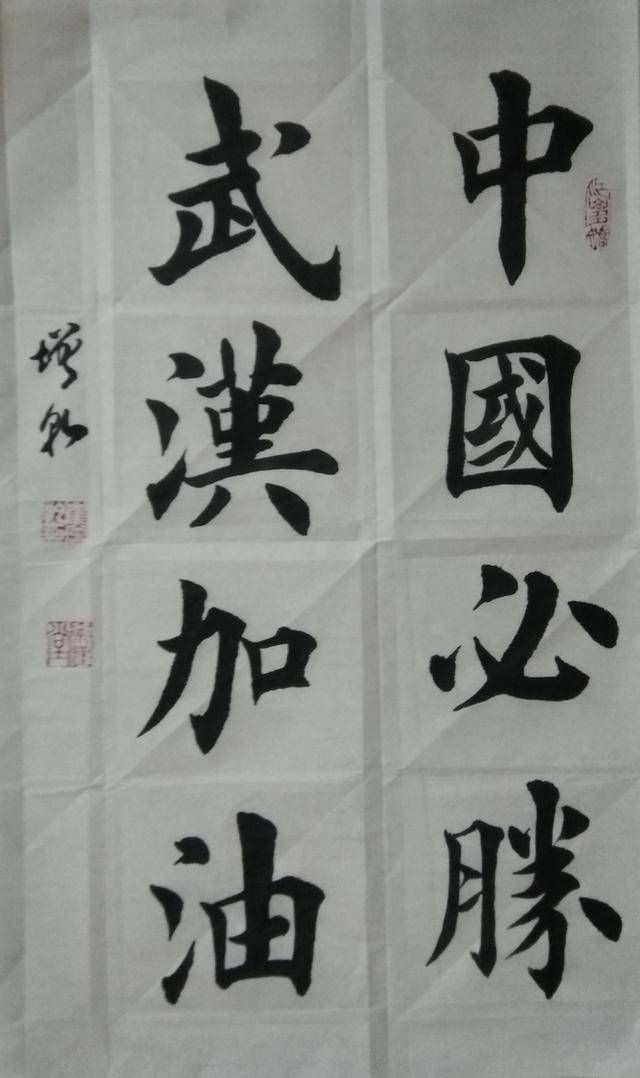 中國必勝
武漢加油